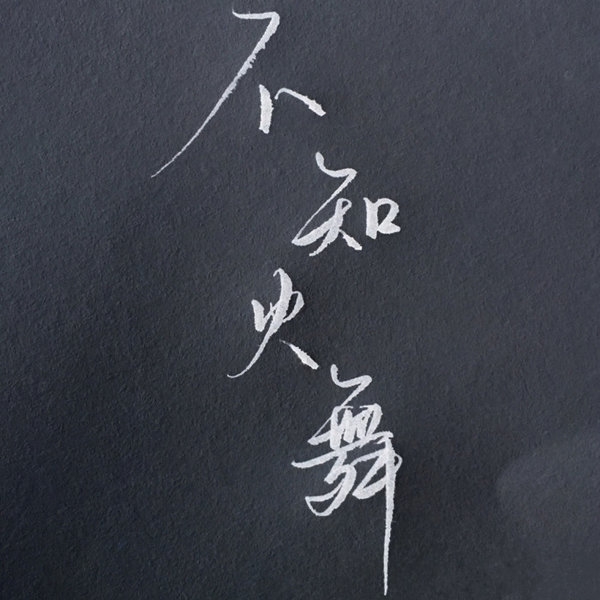 不知火舞